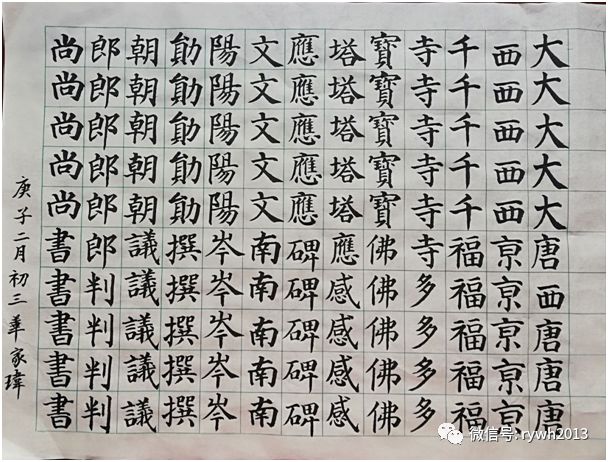 大大大大大唐西唐唐唐
西西西西西京京京京京
千千千千千福福福福福
寺寺寺寺寺寺多多多多
寶寶寶寶寶佛佛佛佛佛
塔塔塔塔塔應感感感感
應應應應應碑碑碑碑碑
文文文文文南南南南南
陽陽陽陽陽岑岑岑岑岑
勛勛勛勛勛撰撰撰撰撰
朝朝朝朝朝議議議議議
郎郎郎郎郎郎判判判判
尚尚尚尚尚書書書書書
庚子二月初三華家瑋
微信号: rywh2013